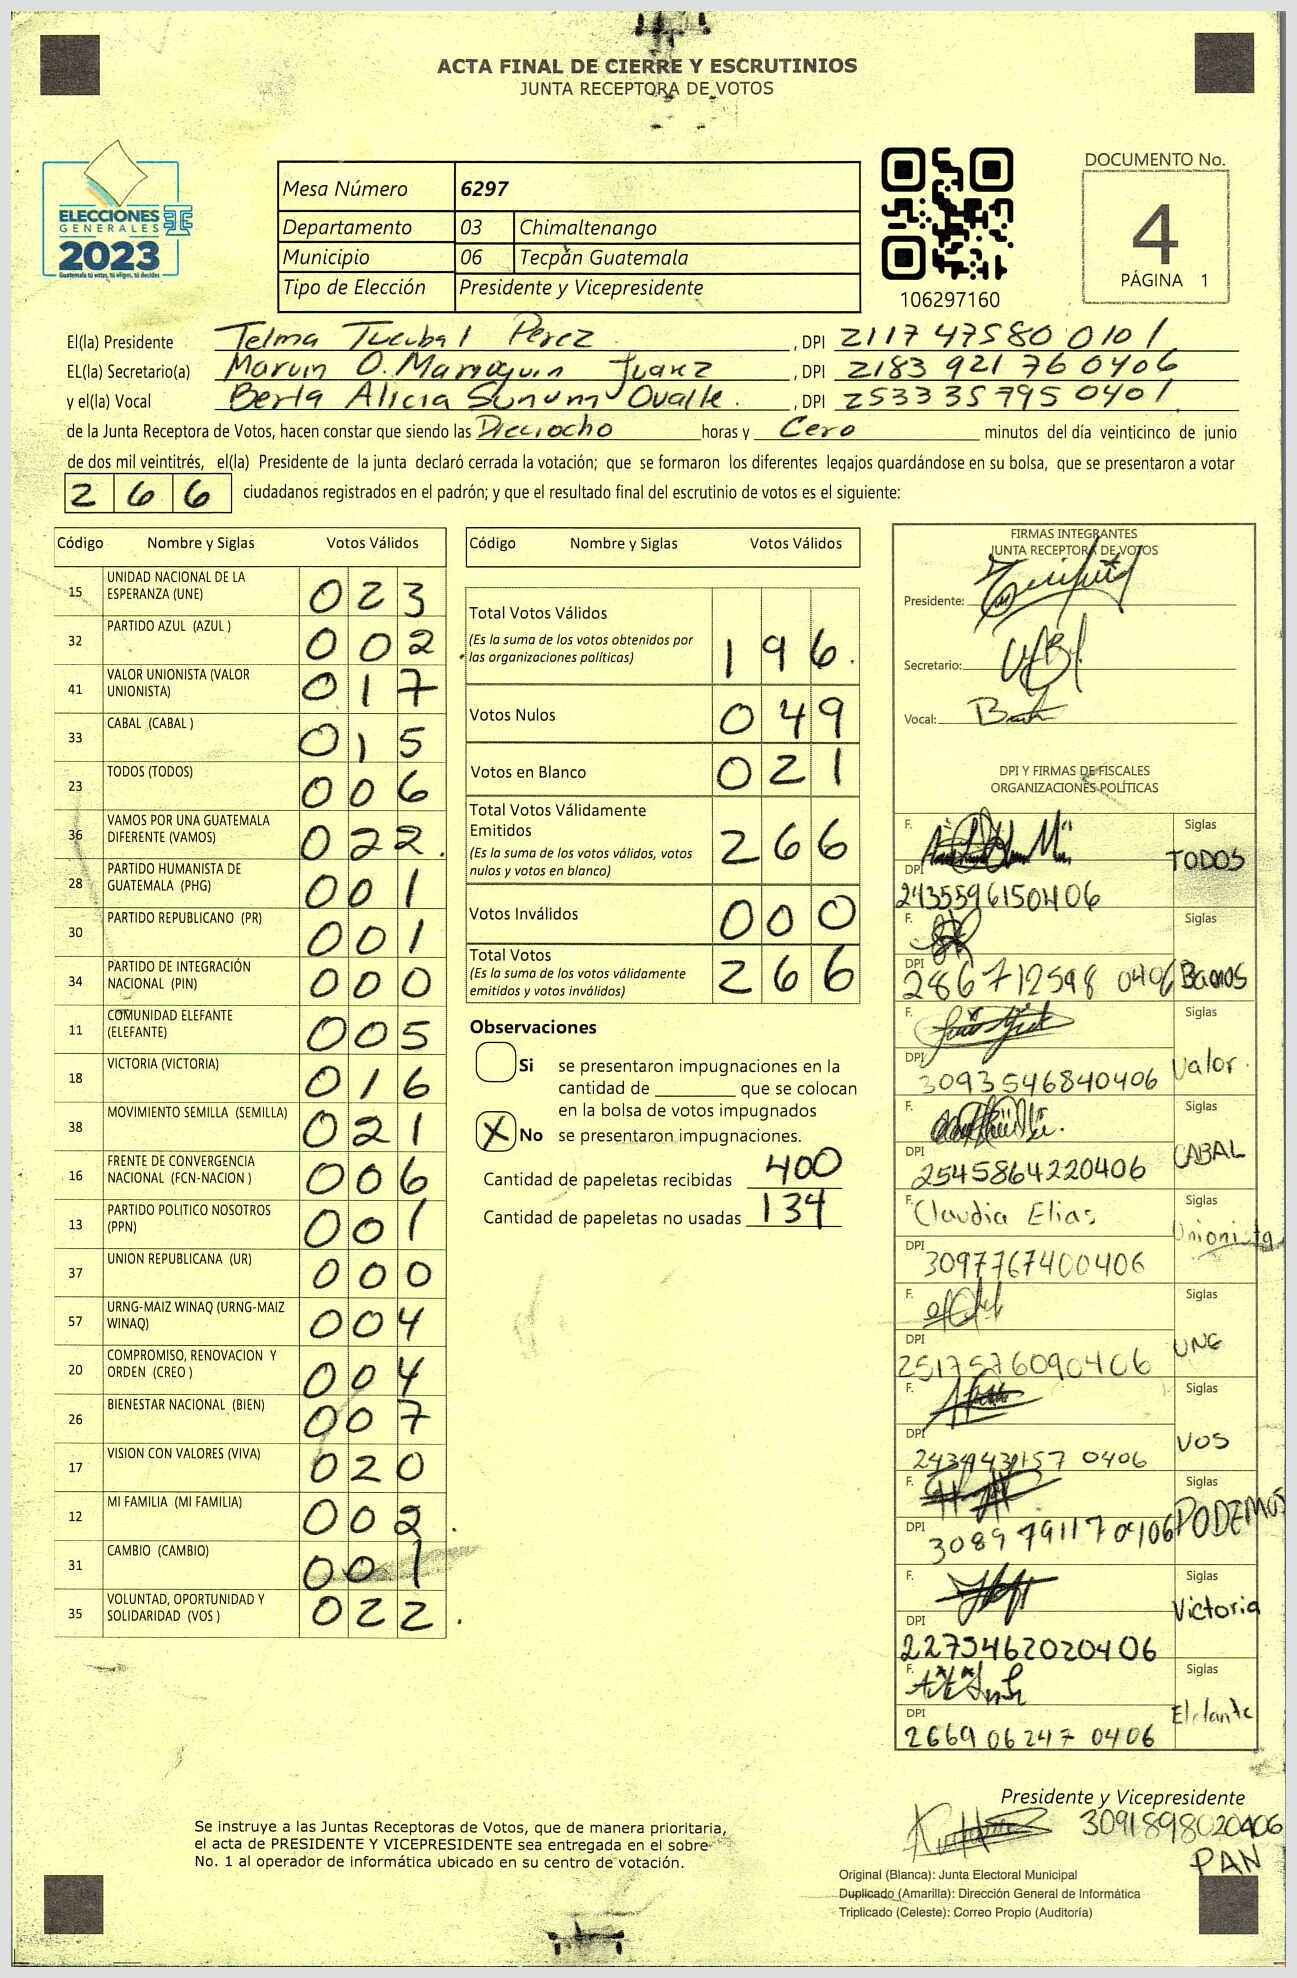 ACTA FINAL DE CIERRE Y ESCRUTINIOS
JUNTA RECEPTORA DE VOTOS
ELECCIONES
GENERALES
2023
Guatemala tú votas, tú eliges, tú decides
Mesa Número 6297
Departamento 03 Chimaltenango
Municipio 06 Tecpán Guatemala
Tipo de Elección Presidente y Vicepresidente
106297160
DOCUMENTO No.
4
PÁGINA 1
El(la) Presidente Telma Tucubal Perez , DPI 2117 47580 0101
EL(la) Secretario(a) Marvin O. Marroquin Juarez , DPI 2183 921 76 0406
y el(la) Vocal Berta Alicia Sunum Ovalle. , DPI 2533 35795 0401
de la Junta Receptora de Votos, hacen constar que siendo las Dieciocho horas y Cero minutos del día veinticinco de junio
de dos mil veintitrés, el(la) Presidente de la junta declaró cerrada la votación; que se formaron los diferentes legajos guardándose en su bolsa, que se presentaron a votar
266 ciudadanos registrados en el padrón; y que el resultado final del escrutinio de votos es el siguiente:
Código Nombre y Siglas Votos Válidos
15 UNIDAD NACIONAL DE LA ESPERANZA (UNE) 023
32 PARTIDO AZUL (AZUL ) 002
41 VALOR UNIONISTA (VALOR UNIONISTA) 017
33 CABAL (CABAL ) 015
23 TODOS (TODOS) 006
36 VAMOS POR UNA GUATEMALA DIFERENTE (VAMOS) 022.
28 PARTIDO HUMANISTA DE GUATEMALA (PHG) 001
30 PARTIDO REPUBLICANO (PR) 001
34 PARTIDO DE INTEGRACIÓN NACIONAL (PIN) 000
11 COMUNIDAD ELEFANTE (ELEFANTE) 005
18 VICTORIA (VICTORIA) 016
38 MOVIMIENTO SEMILLA (SEMILLA) 021
16 FRENTE DE CONVERGENCIA NACIONAL (FCN-NACION ) 006
13 PARTIDO POLITICO NOSOTROS (PPN) 001
37 UNION REPUBLICANA (UR) 000
57 URNG-MAIZ WINAQ (URNG-MAIZ WINAQ) 004
20 COMPROMISO, RENOVACION Y ORDEN (CREO ) 004
26 BIENESTAR NACIONAL (BIEN) 007
17 VISION CON VALORES (VIVA) 020
12 MI FAMILIA (MI FAMILIA) 002.
31 CAMBIO (CAMBIO) 001
35 VOLUNTAD, OPORTUNIDAD Y SOLIDARIDAD (VOS ) 022.
Código Nombre y Siglas Votos Válidos
Total Votos Válidos 196.
(Es la suma de los votos obtenidos por
las organizaciones políticas)
Votos Nulos 049
Votos en Blanco 021
Total Votos Válidamente
Emitidos 266
(Es la suma de los votos válidos, votos
nulos y votos en blanco)
Votos Inválidos 000
Total Votos 266
(Es la suma de los votos válidamente
emitidos y votos inválidos)
Observaciones
Si se presentaron impugnaciones en la
cantidad de ________ que se colocan
en la bolsa de votos impugnados
X No se presentaron impugnaciones.
Cantidad de papeletas recibidas 400
Cantidad de papeletas no usadas 134
FIRMAS INTEGRANTES
JUNTA RECEPTORA DE VOTOS
Presidente:
Secretario:
Vocal:
DPI Y FIRMAS DE FISCALES
ORGANIZACIONES POLÍTICAS
F. Siglas TODOS
DPI 2435596150406
F. Siglas Bamos
DPI 286712598 0406
F. Siglas Valor.
DPI 3093546840406
F. Siglas CABAL
DPI 2545864220406
F. Claudia Elias Siglas Unionista
DPI 3097767400406
F. Siglas UNE
DPI 2517576090406
F. Siglas VOS
DPI 0406
F. Siglas PODEMOS
DPI 3089 79117 0406
F. Siglas Victoria
DPI 2275462020406
F. Siglas Elefante
DPI 2669 06247 0406
Presidente y Vicepresidente
3091898020406
PAN
Se instruye a las Juntas Receptoras de Votos, que de manera prioritaria,
el acta de PRESIDENTE Y VICEPRESIDENTE sea entregada en el sobre
No. 1 al operador de informática ubicado en su centro de votación.
Original (Blanca): Junta Electoral Municipal
Duplicado (Amarilla): Dirección General de Informática
Triplicado (Celeste): Correo Propio (Auditoría)